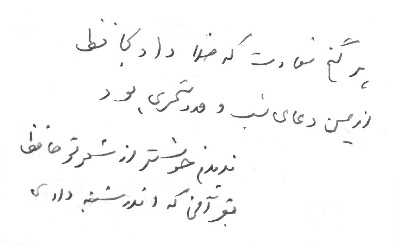 هر گنج سعادت که خدا داد بحافظ
از یمن دعای شب و ورد سحری بود
ندیدم خوشتر از شعر تو حافظ
بقرآنی که اندر سینه داری